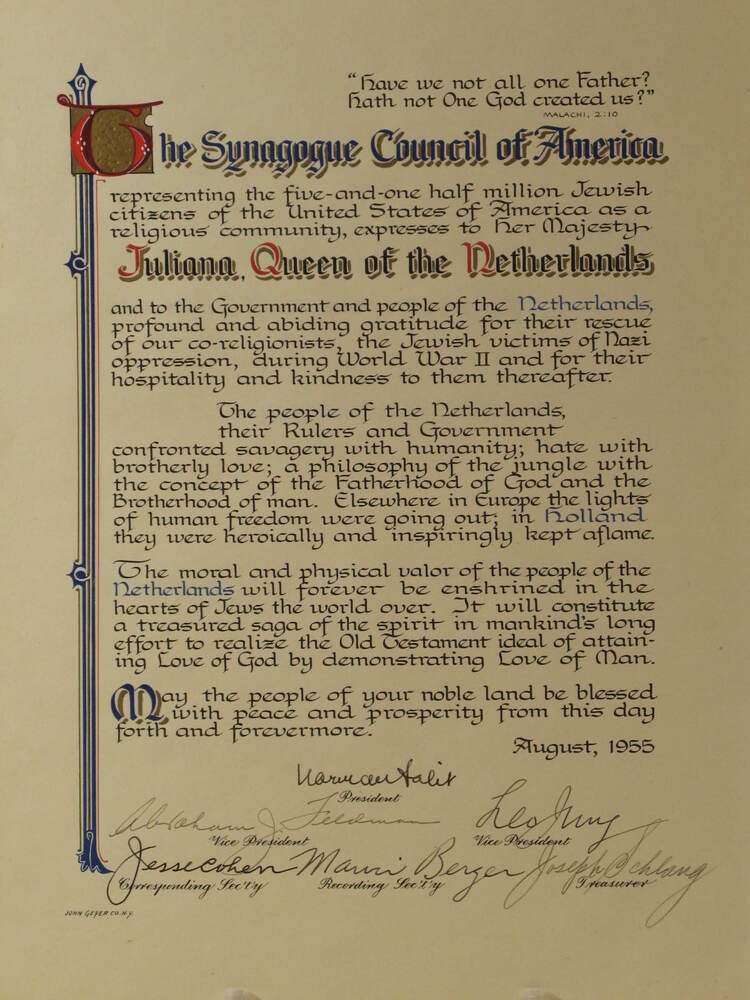 "Have we not all one Father?
Hath not One God created us?"
MALACHI, 2:10
The Synagogue Council of America
representing the five-and-one half million Jewish
citizens of the United States of America as a
religious community, expresses to Her Majesty
Juliana, Queen of the Netherlands
and to the Government and people of the Netherlands,
profound and abiding gratitude for their rescue
of our co-religionists, the Jewish victims of Nazi
oppression, during World War II and for their
hospitality and kindness to them thereafter.
The people of the Netherlands,
their Rulers and Government
confronted savagery with humanity; hate with
brotherly love; a philosophy of the jungle with
the concept of the Fatherhood of God and the
Brotherhood of man. Elsewhere in Europe the lights
of human freedom were going out; in Holland
they were heroically and inspiringly kept aflame.
The moral and physical valor of the people of the
Netherlands will forever be enshrined in the
hearts of Jews the world over. It will constitute
a treasured saga of the spirit in mankind's long
effort to realize the Old Testament ideal of attain-
ing Love of God by demonstrating Love of Man.
May the people of your noble land be blessed
with peace and prosperity from this day
forth and forevermore.
August, 1955
Norman Salit
President
Abraham J. Feldman Leo Jung
Vice President Vice President
Jesse Cohen Berger Joseph Schlang
Corresponding Sec't'y Recording Sec't'y Treasurer
JOHN GEYER CO. N.Y.